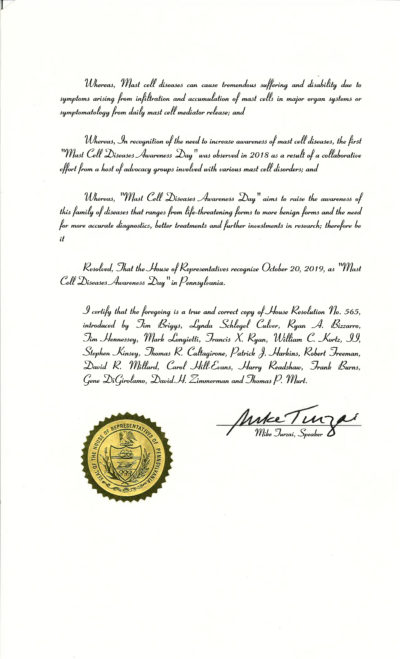 Whereas, Mast cell diseases can cause tremendous suffering and disability due to
symptoms arising from infiltration and accumulation of mast cells in major organ systems or
symptomatology from daily mast cell mediator release; and
Whereas, In recognition of the need to increase awareness of mast cell diseases, the first
"Mast Cell Diseases Awareness Day" was observed in 2018 as a result of a collaborative
effort from a host of advocacy groups involved with various mast cell disorders; and
Whereas, "Mast Cell Diseases Awareness Day" aims to raise the awareness of
this family of diseases that ranges from life-threatening forms to more benign forms and the need
for more accurate diagnostics, better treatments and further investments in research; therefore be
it
Resolved, That the House of Representatives recognize October 20, 2019, as "Mast
Cell Diseases Awareness Day" in Pennsylvania.
I certify that the foregoing is a true and correct copy of House Resolution No. 565,
introduced by Tim Briggs, Lynda Schlegel Culver, Ryan A. Bizzarro,
Tim Hennessey, Mark Longietti, Francis X. Ryan, William C. Kortz, II,
Stephen Kinsey, Thomas R. Caltagirone, Patrick J. Harkins, Robert Freeman,
David R. Millard, Carol Hill-Evans, Harry Readshaw, Frank Burns,
Gene DiGirolamo, David H. Zimmerman and Thomas P. Murt.
Mike Turzai
Mike Turzai, Speaker
SEAL OF THE HOUSE OF REPRESENTATIVES OF PENNSYLVANIA